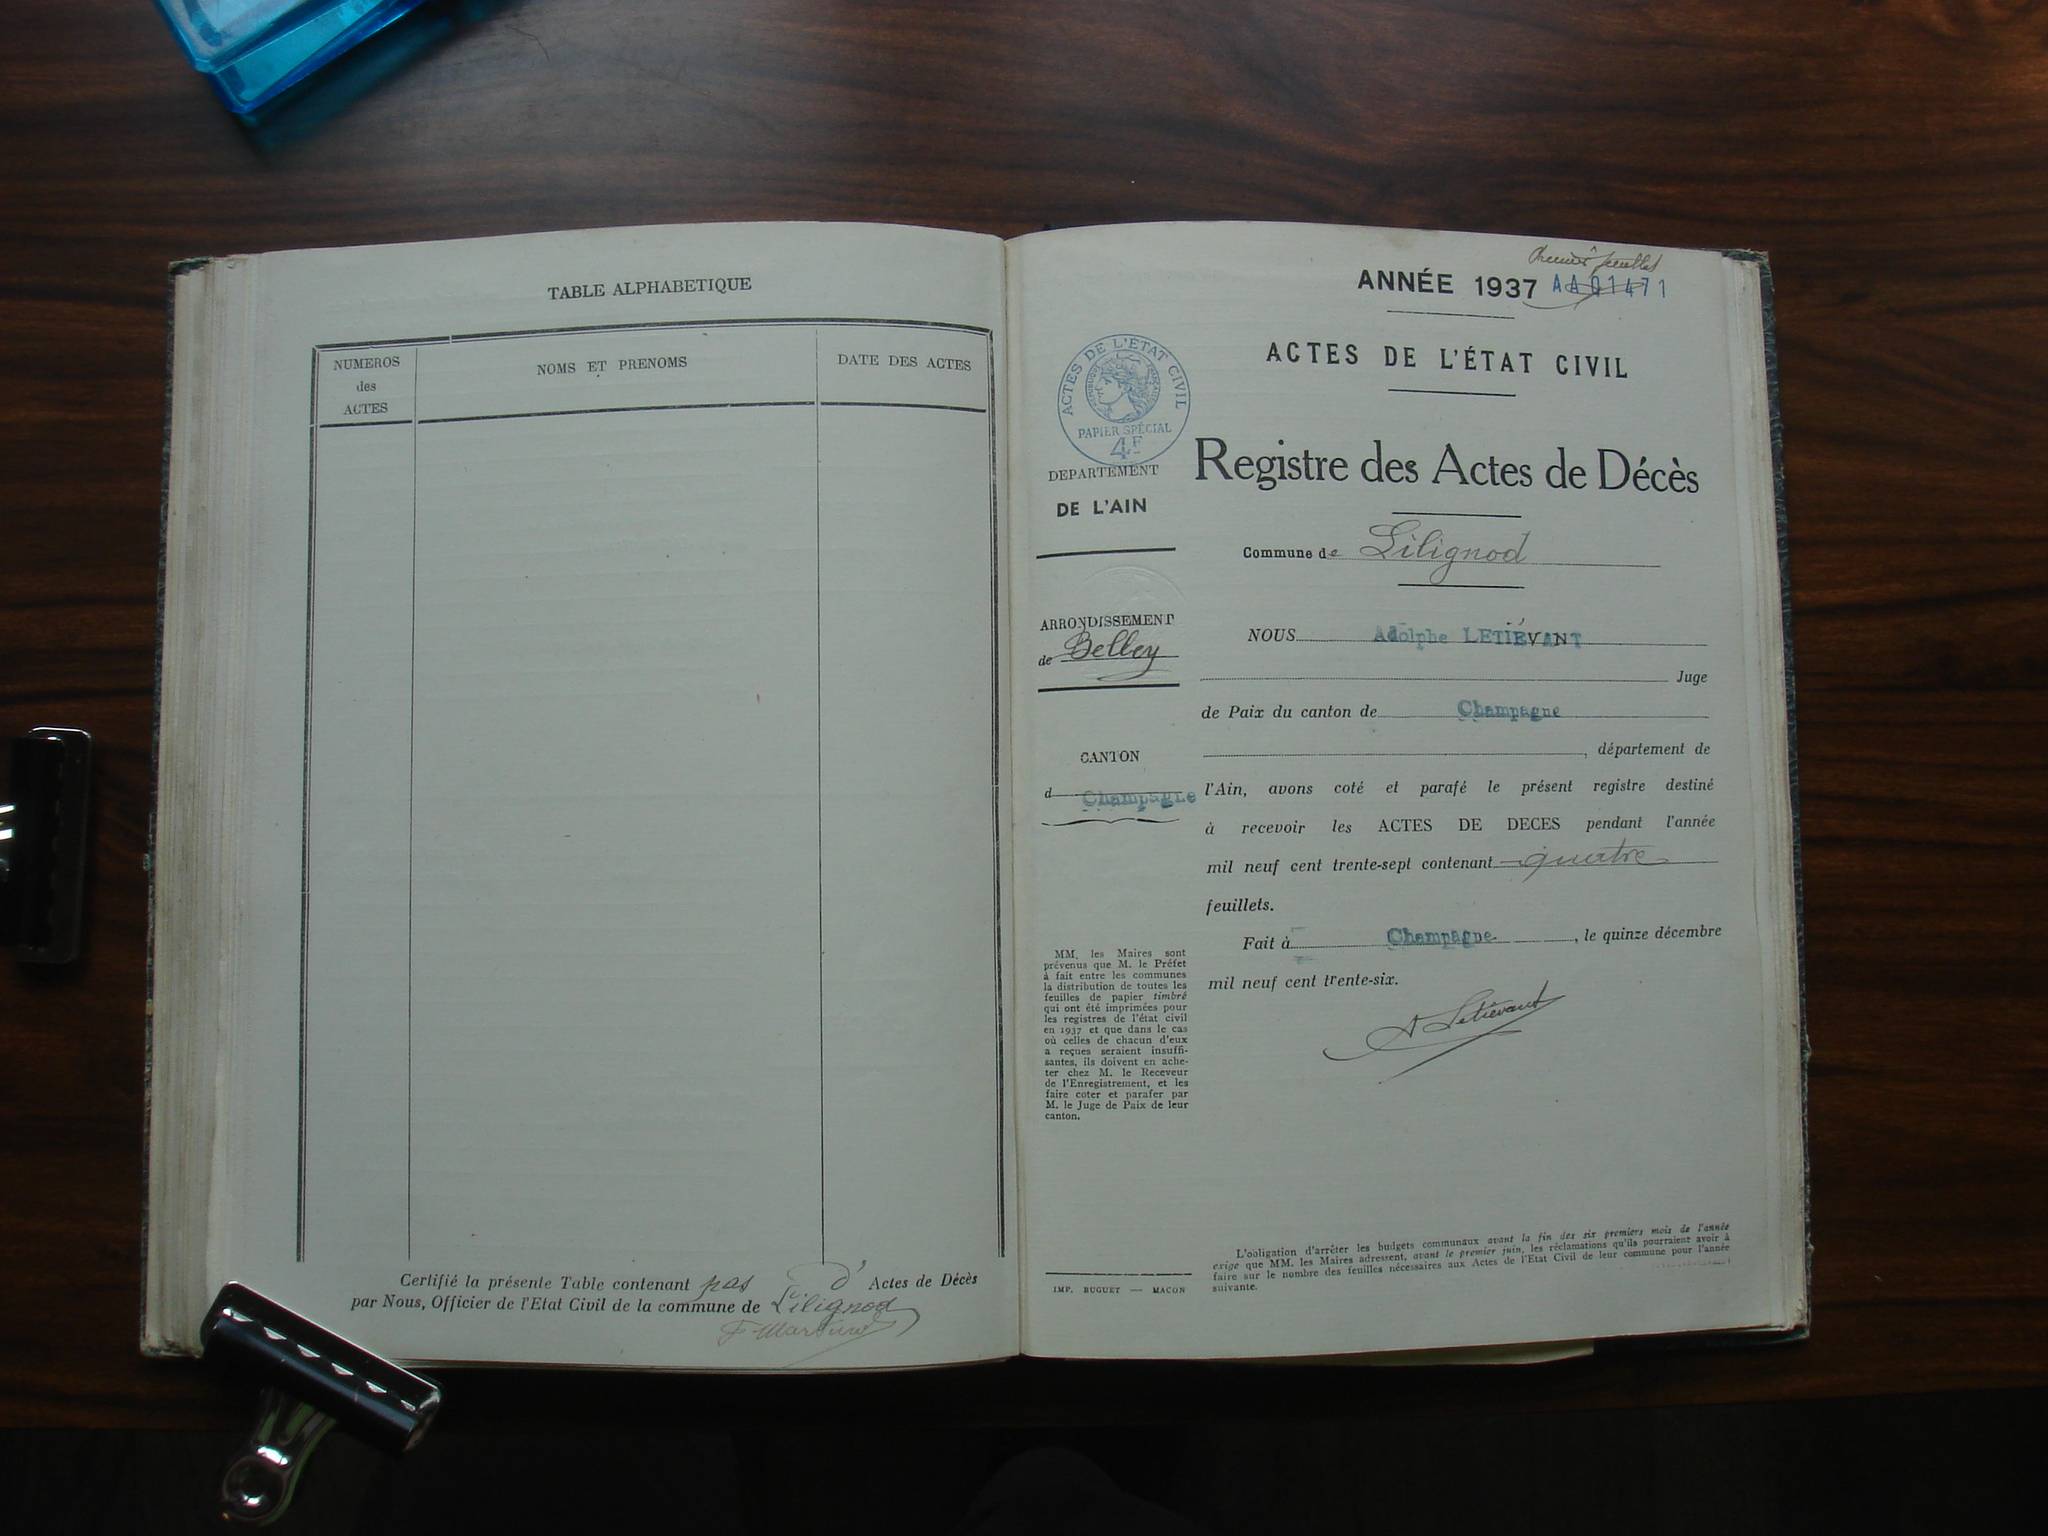 TABLE ALPHABETIQUE
NUMEROS
des
ACTES
NOMS ET PRENOMS
DATE DES ACTES
Certifié la présente Table contenant pas d' Actes de Décès
par Nous, Officier de l'Etat Civil de la commune de Lilignod
Premier feuillet
ANNÉE 1937 AA01471
ACTES DE L'ÉTAT CIVIL
ACTES DE L'ÉTAT CIVIL
RÉPUBLIQUE FRANÇAISE
PAPIER SPÉCIAL
4F
DEPARTEMENT
DE L'AIN
ARRONDISSEMENT
de Belley
CANTON
d Champagne
MM. les Maires sont
prévenus que M. le Préfet
à fait entre les communes
la distribution de toutes les
feuilles de papier timbré
qui ont été imprimées pour
les registres de l'état civil
en 1937 et que dans le cas
où celles de chacun d'eux
a reçues seraient insuffi-
santes, ils doivent en ache-
ter chez M. le Receveur
de l'Enregistrement, et les
faire coter et parafer par
M. le Juge de Paix de leur
canton.
IMP. BUGUET — MACON
Registre des Actes de Décès
Commune de Lilignod
NOUS Adolphe LETIÉVANT
Juge
de Paix du canton de Champagne
, département de
l'Ain, avons coté et parafé le présent registre destiné
à recevoir les ACTES DE DECES pendant l'année
mil neuf cent trente-sept contenant quatre
feuillets.
Fait à Champagne, le quinze décembre
mil neuf cent trente-six.
A Letiévant
L'obligation d'arrêter les budgets communaux avant la fin des six premiers mois de l'année
exige que MM. les Maires adressent, avant le premier juin, les réclamations qu'ils pourraient avoir à
faire sur le nombre des feuilles nécessaires aux Actes de l'Etat Civil de leur commune pour l'année
suivante.